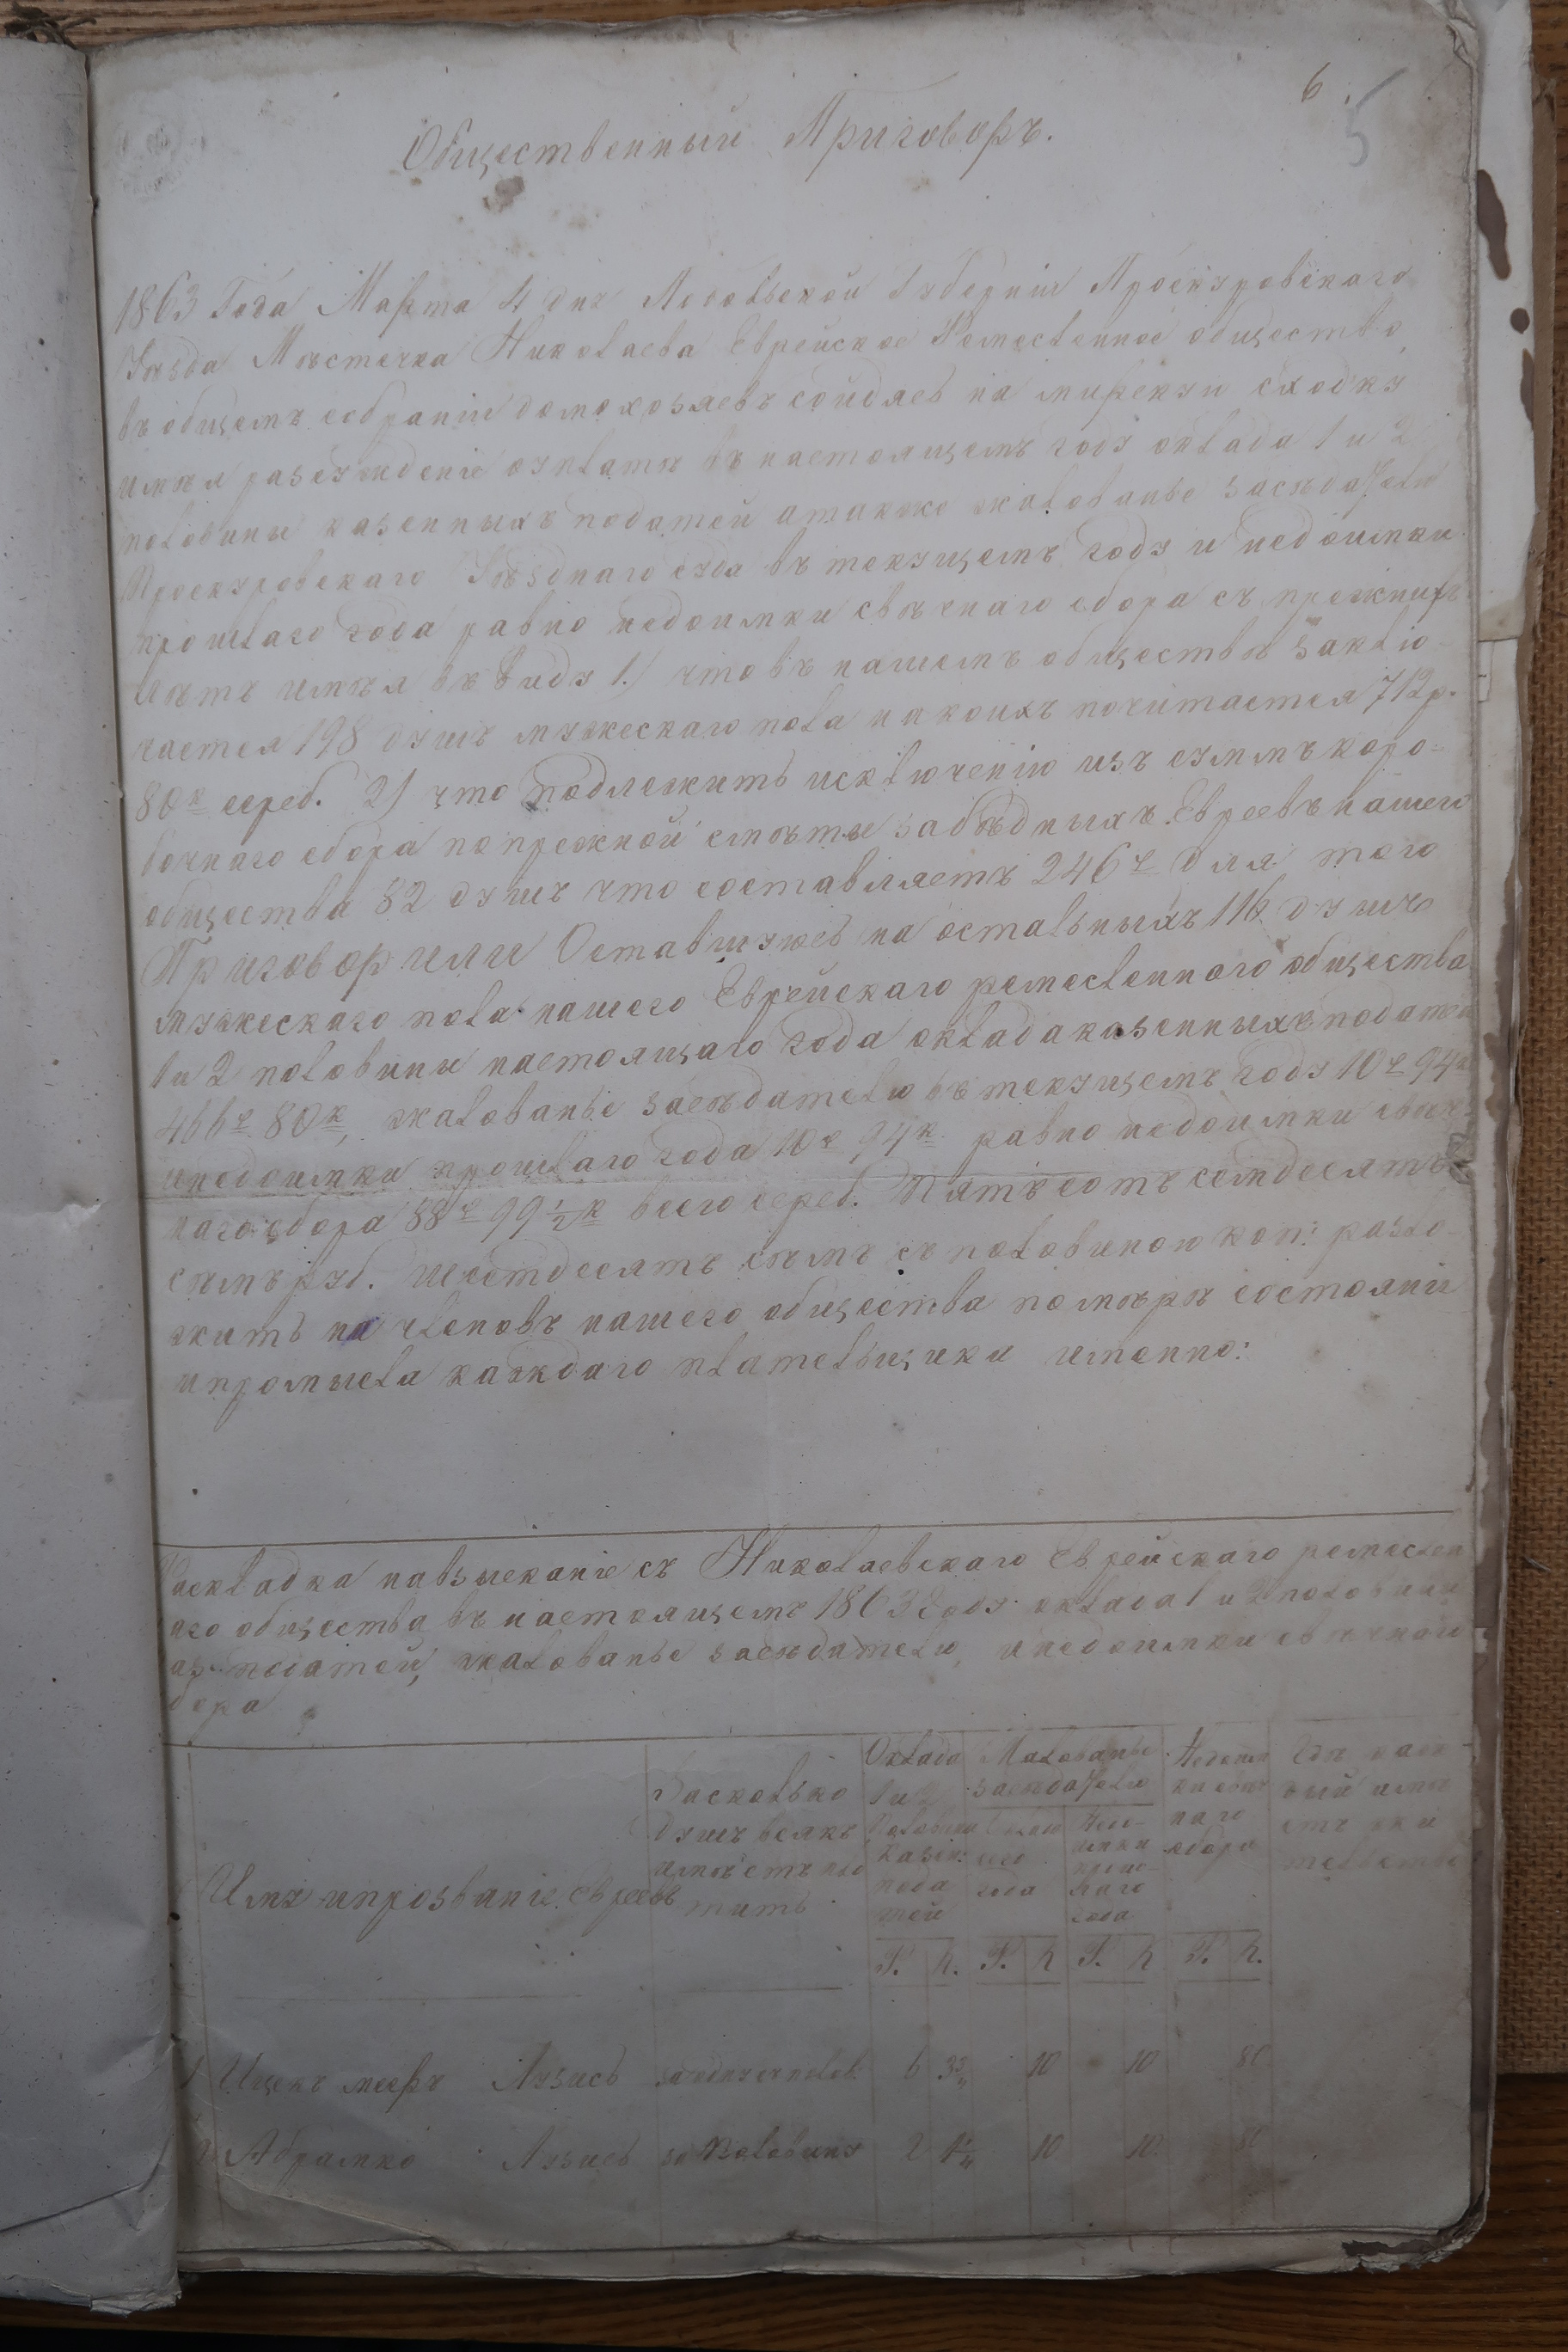 6.
5
Общественный Приговоръ.
1863 Года Марта 4 дня Подольской Губерніи Проскуровскаго
Уѣзда Мѣстечка Николаева Еврейское Ремесленное общество
въ общемъ собраніи домохозяевъ сойдясь на мирскую сходку
имѣя разсужденіе оуплатѣ въ настоящемъ году оклада 1 и 2
половины казенныхъ податей атакже жалованье засѣдателю
Проскуровскаго Уѣзднаго суда въ текущемъ году и недоимки
прошлаго года равно недоимки свѣчнаго сбора съ прежнихъ
лѣтъ имѣя въ виду 1.) что въ нашемъ обществѣ заклю-
чается 198 душъ мужескаго пола накоихъ почитается 712 р.
80 к сереб. 2) что подлежитъ исключенію изъ суммъ коро-
бочнаго сбора попрежной смѣты забѣдныхъ Евреевъ нашего
общества 82 душъ что составляетъ 246 р для того
Приговорили Оставшуюсь на остальныхъ 116 душъ
мужескаго пола нашего Еврейскаго ремесленного общества
1 и 2 половины настоящаго года оклада казенныхъ податей
466 р 80 к, жалованье засѣдателю въ текущемъ году 10 р 94 к
инедоимки прошлаго года 10 р 94 к равно недоимки свѣч-
наго сбора 88 р 99 ½ к всего сереб. Пятъ сотъ семдесятъ
семъ руб. шестдесятъ семъ съ половиною коп: разло-
житъ на членовъ нашего общества помѣрѣ состоянія
ипромысла каждаго плательщика именно:
Раскладка навзысканіе съ Николаевскаго Еврейскаго ремеслен
аго общества въ настоящемъ 1863 году оклада 1 и 2 половины
податей, жалованье засѣдателю, инедоимки свѣчного
бора
Имя ипрозваніе Евреевъ
Засколько душъ всякъ имѣетъ пла титъ
Оклада 1 и 2 половины казен: пода тей
Жалованье засѣдателю
сего года
Недо- имки прош- лаго года
Недоим ки свѣч наго сбора
Гдѣ каж- дый имѣ етъ жи тельство
Р. К. Р. К Р. К Р. К.
1 Ицекъ мееръ Лузись заодну споλов. 6 3¾ 10 10 80
2 Абрамко Лузись за половину 2 1¼ 10 10 80